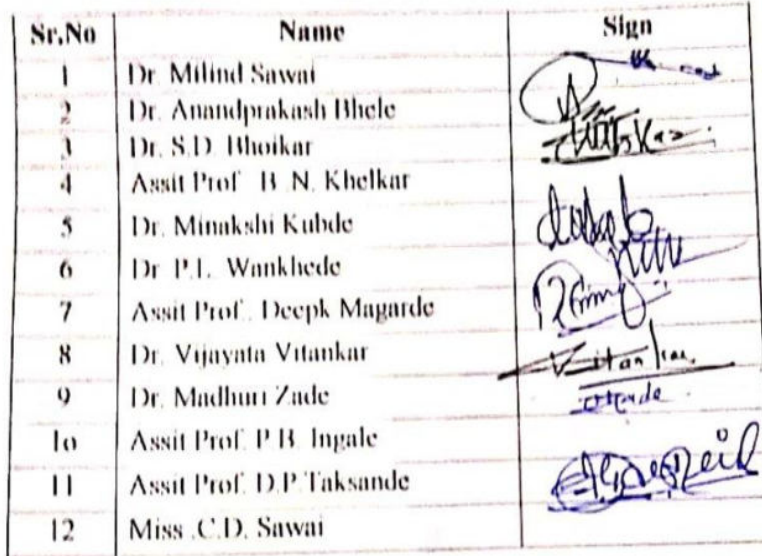 Sr.No Name Sign
1 Dr. Milind Sawai
2 Dr. Anandprakash Bhele
3 Dr. S.D. Bhoikar
4 Assit Prof. B. N. Khelkar
5 Dr. Minakshi Kubde
6 Dr P.L. Wankhede
7 Assit Prof. Deepk Magarde
8 Dr. Vijayata Vitankar
9 Dr. Madhuri Zade
1o Assit Prof. P.B. Ingale
11 Assit Prof. D.P.Taksande
12 Miss .C.D. Sawai